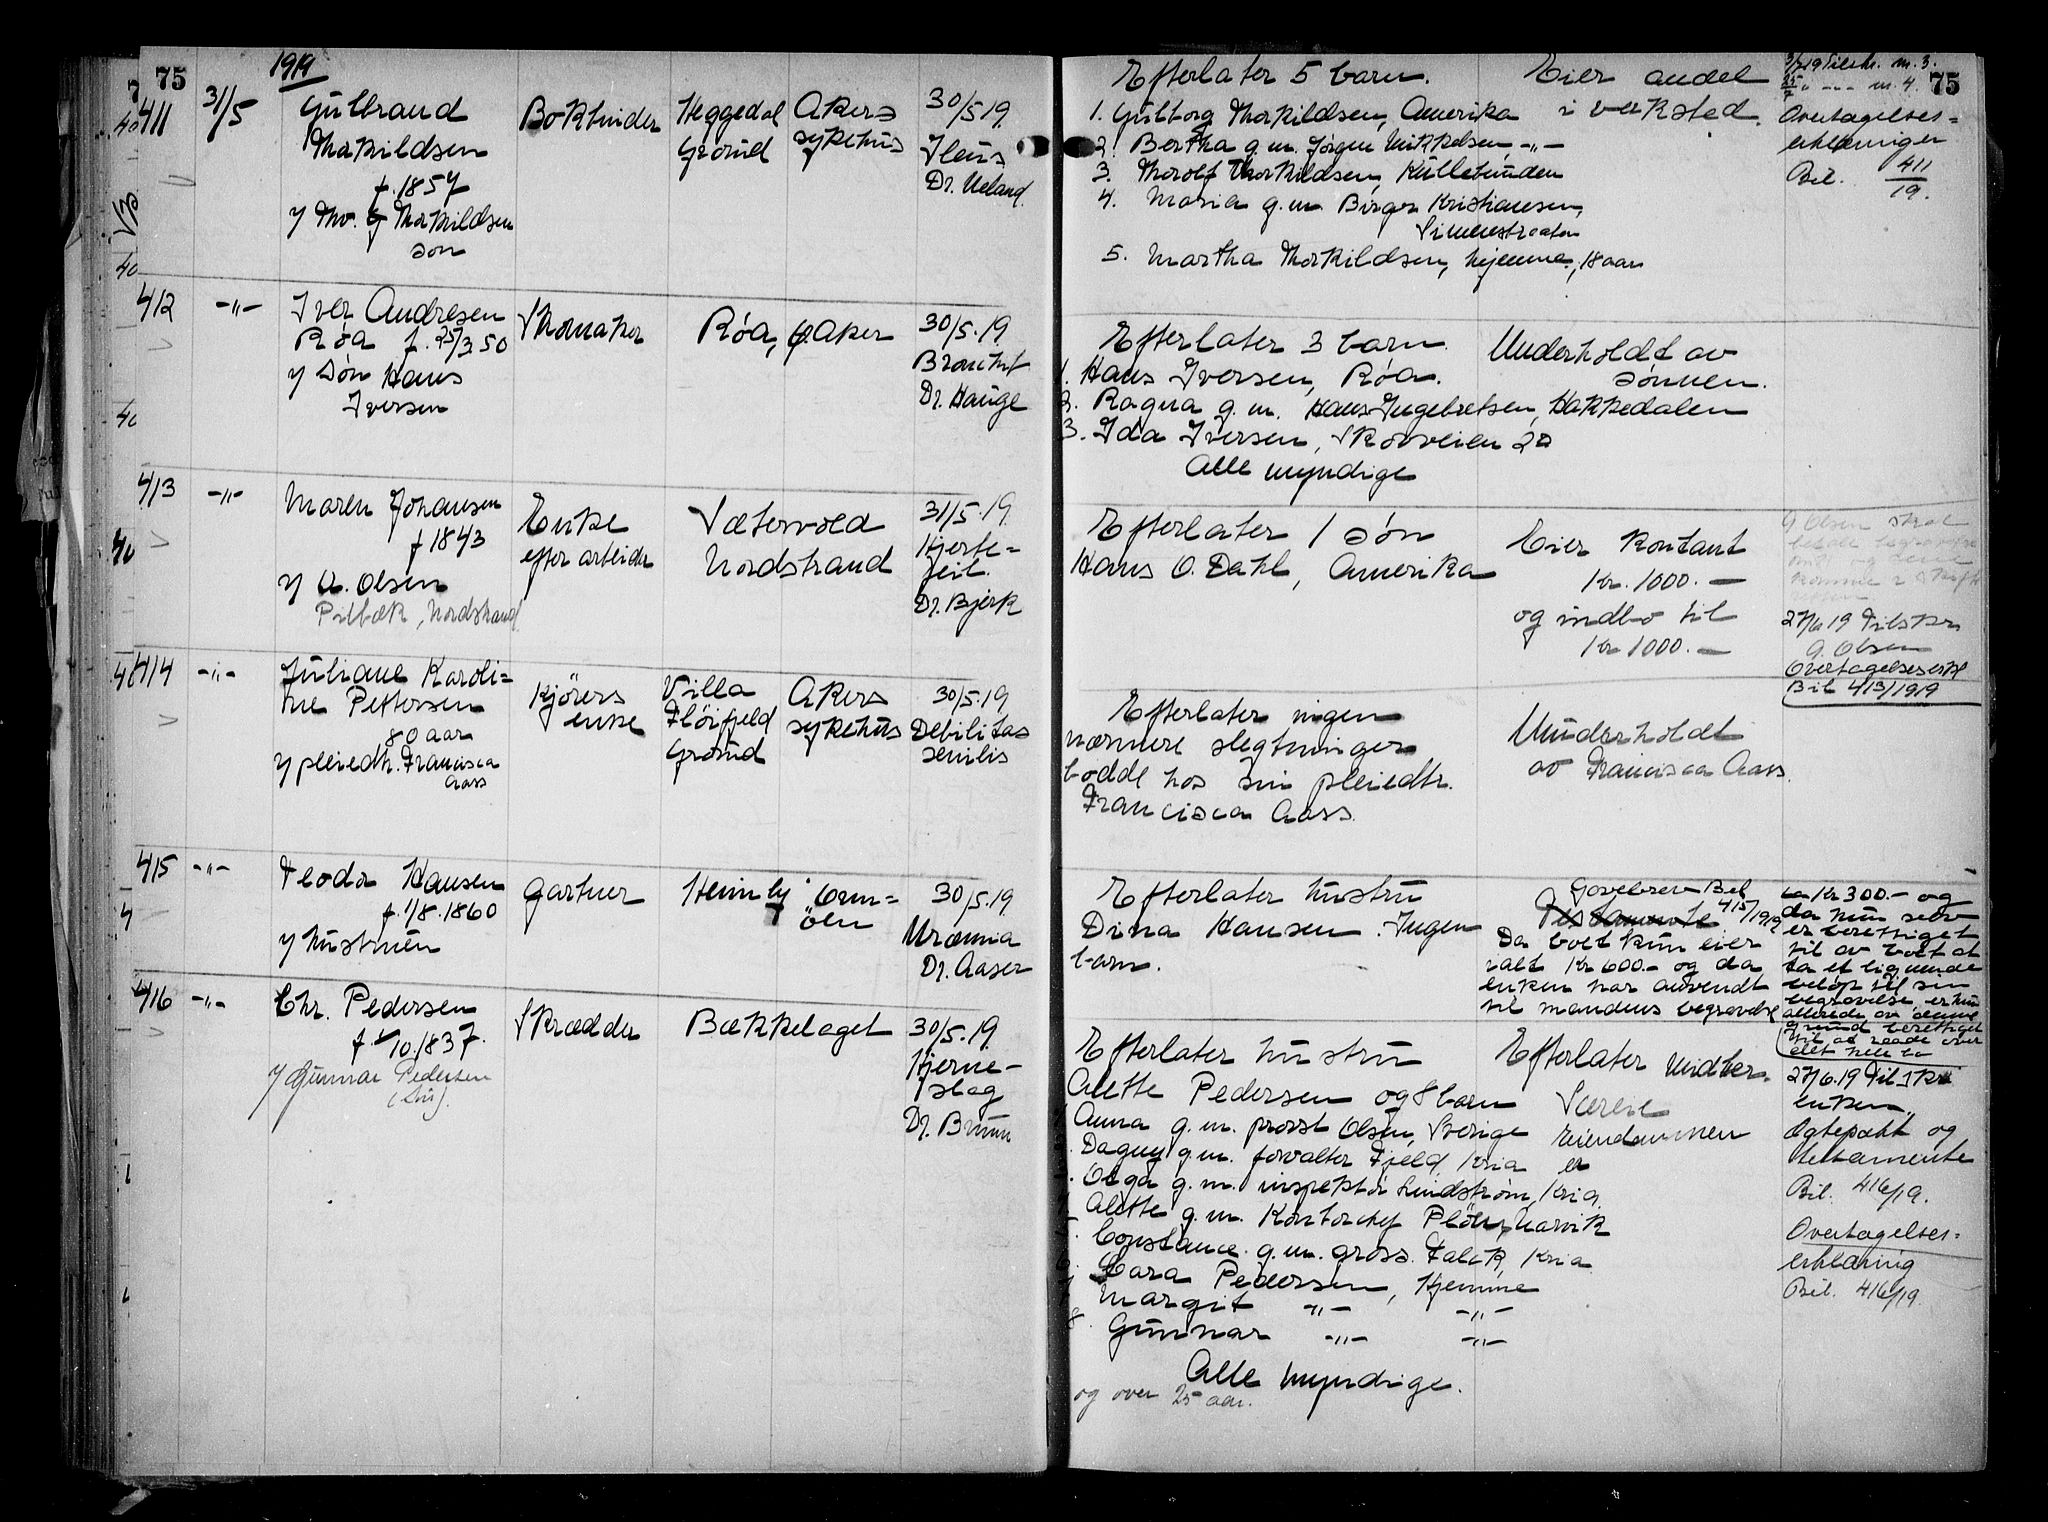 75
1919
411
31/5
Gulbrand
Thorkildsen
f. 1857
v/ Tho. G Thorkildsen
søn
Bokbinder
Heggedal
Grorud
Akers
sykehus
30/5 19
Ileus
Dr. Ueland
412
-"-
Iver Andresen
Røa f. 25/3 50
v/ Søn Hans
Iversen
Skomaker
Røa, V. Aker
30/5.19
Bronchit
Dr. Hauge
413
-"-
Maren Johansen
f 1843
v/ A. Olsen
Pilbæk, Nordstrand
Enke
efter arbeider
Sætervold
Nordstrand
31/5.19
Hjerte=
feil.
Dr. Bjerk
414
-"-
Juliane Karoli=
ne Pettersen
80 aar
v/ pleiedtr. Francisca
Aass
Kjørers
enke
Villa
Fløifjeld
Grorud
Akers
sykehus
30/5.19
Debilitas
senilis
415
-"-
Teodor Hansen
f. 1/8.1860
v/ hustruen
Gartner
Heimly Orm=
øen
30/5.19
Uræmia
Dr. Aaser
416
-"-
Chr. Pedersen
f. 1/10.1837.
v/ Gunnar Pedersen
(søn).
Skrædder
Bækkelaget
30/5.19
Hjerne-
slag
Dr. Bruun
75
Efterlater 5 barn.
1. Gulborg Thorkildsen, Amerika
2. Bertha g.m. Jørgen Mikkelsen, -"-
3. Thorolf Thorkildsen, Kullebunden
4. Maria g.m. Birger Kristiansen,
Simenstraaten
5. Martha Thorkildsen, hjemme, 18 aar
Eier andel
i verksted.
3/7 19 Tilskr. nr. 3.
25/7 " -"- nr. 4.
Overtagelses=
erklæringer
Bil. 411/19.
Efterlater 3 barn.
1. Hans Iversen, Røa.
2. Ragna g.m. Hans Ingebretsen, Hakkedalen
3. Ida Iversen, Skovveien 20
Alle myndige
Underholdt av
sønnen.
Efterlater 1 søn
Hans O. Dahl, Amerika
Eier kontant
Kr. 1000.—
og indbo til
Kr 1000.—
A Olsen skal
betale begravelse
27/6 19 Tilskr.
A. Olsen
Overtagelseserkl
Bil 413/1919
Efterlater ingen
nærmere slegtninger
bodde hos sin pleiedtr.
Francisca Aass.
Underholdt
av Francisca Aass.
Efterlater hustru
Dina Hansen. Ingen
barn.
Gavebrev Bil
Testamente 415/1919
Da boet kun eier
ialt Kr 600.- og da
enken har anvendt
til mandens begravelse
ca Kr 300.- og
da hun selv
er berettiget
til av boet at
ta et lignende
beløp til sin
begravelse, er hun
allerede av denne
grund berettiget
til at raade over
det hele bo
Efterlater hustru
Alette Pedersen og 8 barn
Anna g.m. provst Olsen, Sverige
Dagny g.m. forvalter Fjeld, Kria
Olga g.m. inspektør Lindstrøm, Kria.
Alette g.m. Kontorchef Pløhn, Narvik
Constance g.m. gross. Falck, Kria
Lara Pedersen, Hjemme
Margit -"- -"-
8. Gunnar -"- -"-
Alle myndige.
og over 25 aar.
Efterlater midler.
Særeie
Eiendommen
er
27/6.19 Tilskr
enken.
Ægtepakt og
testamente
Bil. 416/19.
Overtagelses=
erklæring
Bil. 416/19.